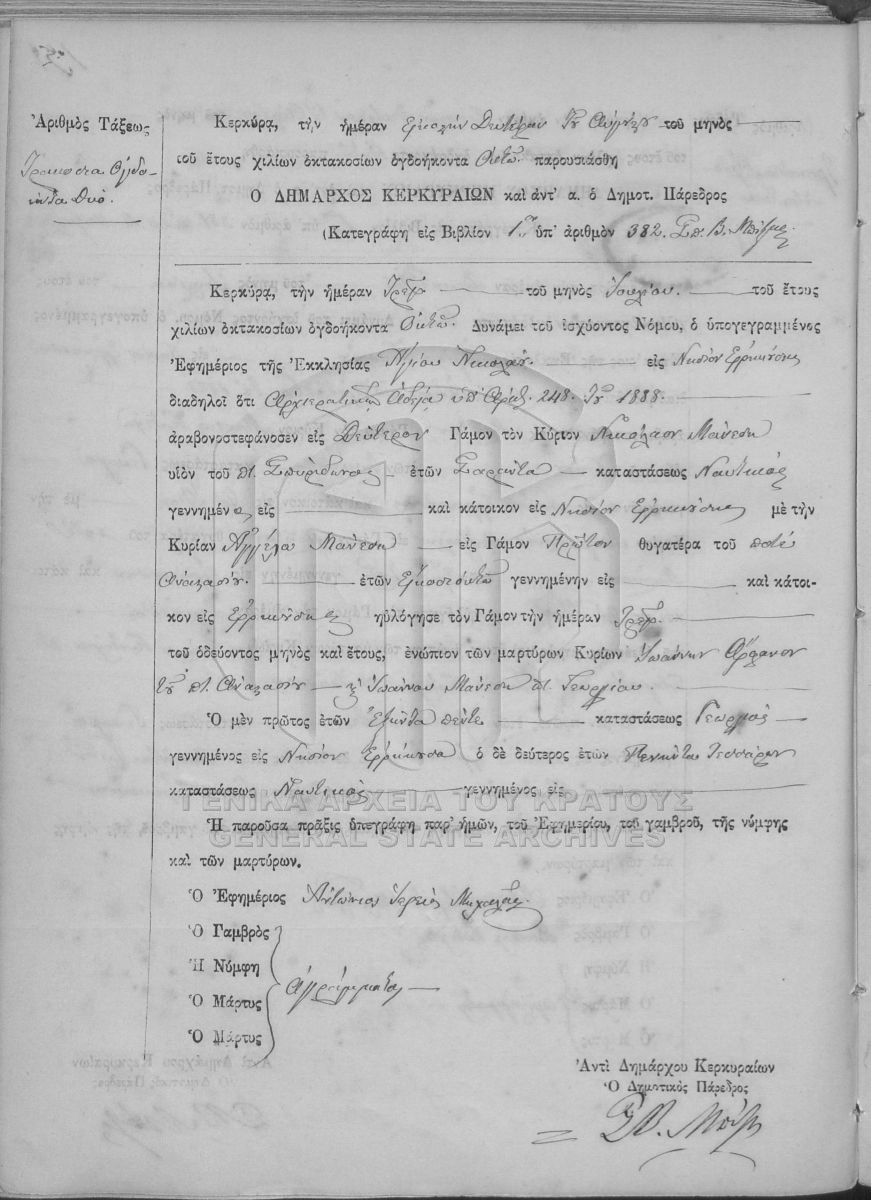 Ἀριθμὸς Τάξεως
Τριακόσια Ὀγδο-
ήντα δυό.
Κερκύρα, τὴν ἡμέραν εἰκοστὴν Δευτέραν τοῦ Αὐγούστου τοῦ μηνὸς
τοῦ ἔτους χιλίων ὀκτακοσίων ὀγδοήκοντα ὀκτὼ παρουσιάσθη
Ὁ ΔΗΜΑΡΧΟΣ ΚΕΡΚΥΡΑΙΩΝ καὶ ἀντ' α. ὁ Δημοτ. Πάρεδρος
(Κατεγράφη εἰς Βιβλίον 1ον ὑπ' ἀριθμὸν 382. Σπ. Β.
Κερκύρα, τὴν ἡμέραν Τρεῖς τοῦ μηνὸς Ἰουλίου. τοῦ ἔτους
χιλίων ὀκτακοσίων ὀγδοήκοντα ὀκτὼ. Δυνάμει τοῦ ἰσχύοντος Νόμου, ὁ ὑπογεγραμμένος
Ἐφημέριος τῆς Ἐκκλησίας Ἁγίου Νικολάου εἰς Νησίον Ἐρρικούσης
διαδηλοῖ ὅτι Ἀρχιερατικῆς Ἀδεία ὑπ' Ἀριθ. 248. τοῦ 1888.
ἀραβονοστεφάνοσεν εἰς Δεύτερον Γάμον τὸν Κύριον Νικόλαον Μάνεση
υἱὸν τοῦ π. Σπυρίδωνος ἐτῶν Σαράντα καταστάσεως Ναυτικὸς
γεννημένο εἰς καὶ κάτοικον εἰς Νησίον Ἐρρικούσης μὲ τὴν
Κυρίαν Ἀγγέλω Μάνεση εἰς Γάμον Πρῶτον θυγατέρα τοῦ ποτέ
Ἀναστάση. ἐτῶν εἰκοσιοκτὼ γεννημένην εἰς καὶ κάτοι-
κον εἰς Ἐρρικούσης ηὐλόγησε τὸν Γάμον τὴν ἡμέραν Τρεῖς.
τοῦ ὁδεύοντος μηνὸς καὶ ἔτους, ἐνώπιον τῶν μαρτύρων Κυρίων Ἰωάννην
τοῦ π. Ἀναστάση κ Ἰωάννου Μάνεση π. Γεωργίου.
Ὁ μὲν πρῶτος ἐτῶν Ἑξήντα πέντε καταστάσεως Γεωργὸς
γεννημένος εἰς Νησίον Ἐρρικούσα ὁ δὲ δεύτερος ἐτῶν Πενήντα Τεσσάρων
καταστάσεως Ναυτικὸς γεννημένος εἰς
ΓΕΝΙΚΑ ΑΡΧΕΙΑ ΤΟΥ ΚΡΑΤΟΥΣ
Ἡ παροῦσα πρᾶξις ὑπεγράφη παρ' ἡμῶν, τοῦ Ἐφημερίου, τοῦ γαμβροῦ, τῆς νύμφης
GENERAL STATE ARCHIVES
καὶ τῶν μαρτύρων.
Ὁ Ἐφημέριος Ἀντώνιος Ἱερεὺς
Ὁ Γαμβρὸς
Ἡ Νύμφη
Ὁ Μάρτυς ἀγράμματοι
Ὁ Μάρτυς
Ἀντὶ Δημάρχου Κερκυραίων
Ὁ Δημοτικὸς Πάρεδρος